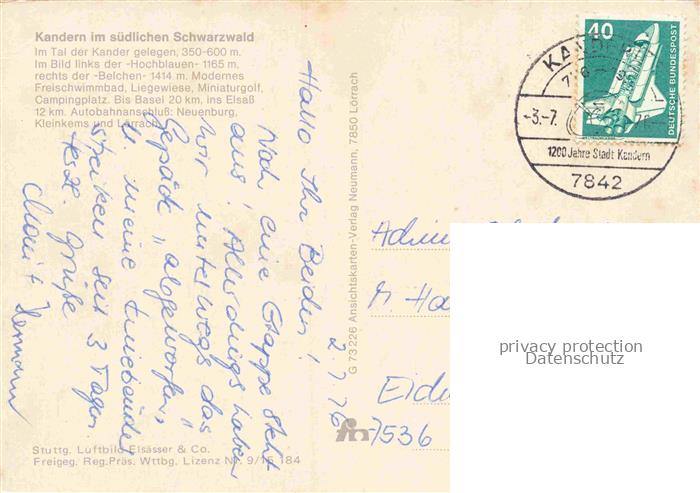 Kandern im südlichen Schwarzwald
Im Tal der Kander gelegen, 350-600 m.
Im Bild links der -Hochblauen- 1165 m,
rechts der -Belchen- 1414 m. Modernes
Freischwimmbad, Liegewiese, Miniaturgolf,
Campingplatz. Bis Basel 20 km, ins Elsaß
12 km. Autobahnanschluß: Neuenburg,
Kleinkems und Lörrach.
Hallo Ihr Beiden!
2.7.76
Noch eine Etappe steht
aus! Allerdings haben
wir unterwegs das
Gepäck "abgeworfen"
u. meine Kniebänder
streiken seit 3 Tagen
Herzl. Grüße
Hermann
G 73 226 Ansichtskarten-Verlag Neumann, 7850 Lörrach
Stuttg. Luftbild Elsässer & Co.
Freigeg. Reg.Präs. Wttbg. Lizenz Nr. 9/15 184
40
DEUTSCHE BUNDESPOST
-3.-7.
1200 Jahre Stadt Kandern
7842
7536
privacy protection
Datenschutz